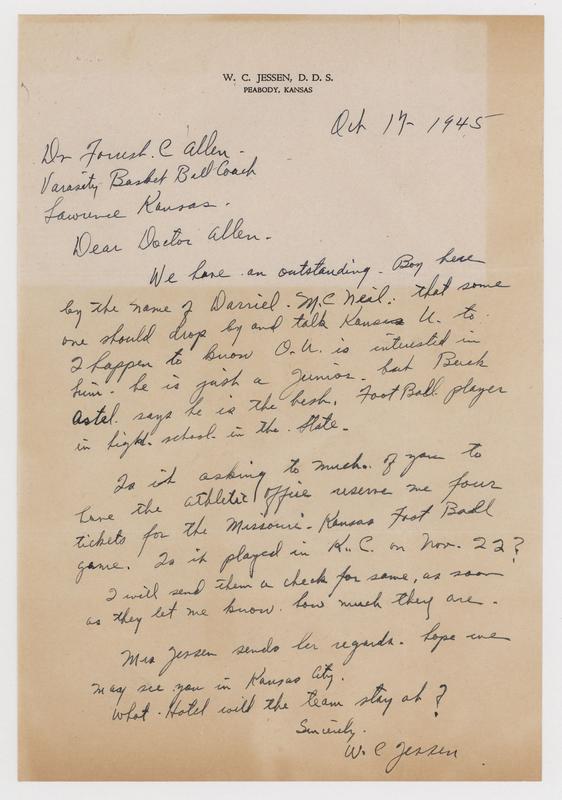 W. C. JESSEN, D. D. S.
PEABODY, KANSAS
Oct 17 - 1945
Dr Forrest. C Allen -
Varasity Basket Ball Coach
Lawrence Kansas.
Dear Doctor Allen -
We have an outstanding Boy here
by the name of Darriel. McNeal. that some
one should drop by and talk Kansas U. to.
I happen to know O.U. is interested in
him. he is just a Junior - but
Astel. says he is the best. Foot Ball player
in high school in the State -
Is it asking to much. of you to
have the athletic office reserve me four
tickets for the Missouri - Kansas Foot Ball
game. Is it played in K.C. on Nov. 22?
I will send them a check for same, as soon
as they let me know how much they are -
Mrs Jessen sends her regards - hope we
may see you in Kansas City.
What - Hotel will the team stay at?
Sincerely.
W. C Jessen